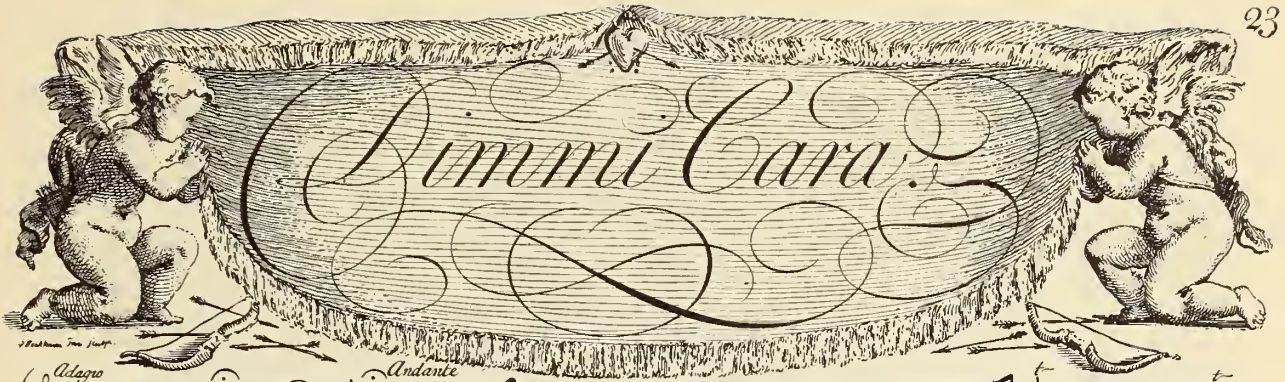 23
Dimmi Cara.
Adagio Andante